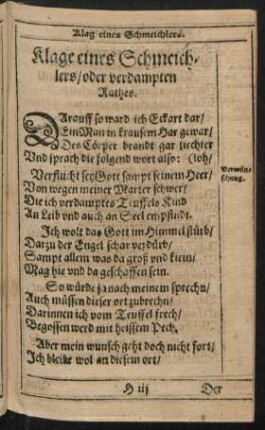 Klag eines Schmeichlers.
Klage eines Schmeich-
lers/oder verdampten
Rathes.
Darauff so ward ich Eckart dar/
Ein Man in krausem Har gewar/
Des Cörper brandt gar liechter
Vnd sprach die folgend wort also: (loh/
Verflucht sey Gott sampt seinem Heer/
Verwün-
schung.
Von wegen meiner Marter schwer/
Die ich verdamptes Teuffels Kind
An Leib vnd auch an Seel empfindt.
Ich wolt das Gott im Himmel stürb/
Darzu der Engel schar verdürb/
Sampt allem was da groß vnd klein/
Mag hie vnd da geschaffen sein.
So würde zu nach meinem sprechn/
Auch müssen dieser ort zubrechn/
Darinnen ich vom Teuffel frech/
Begossen werd mit heissem Pech.
Aber mein wunsch geht doch nicht fort/
Ich bleibe wol an diesem ort/
H iij
Der